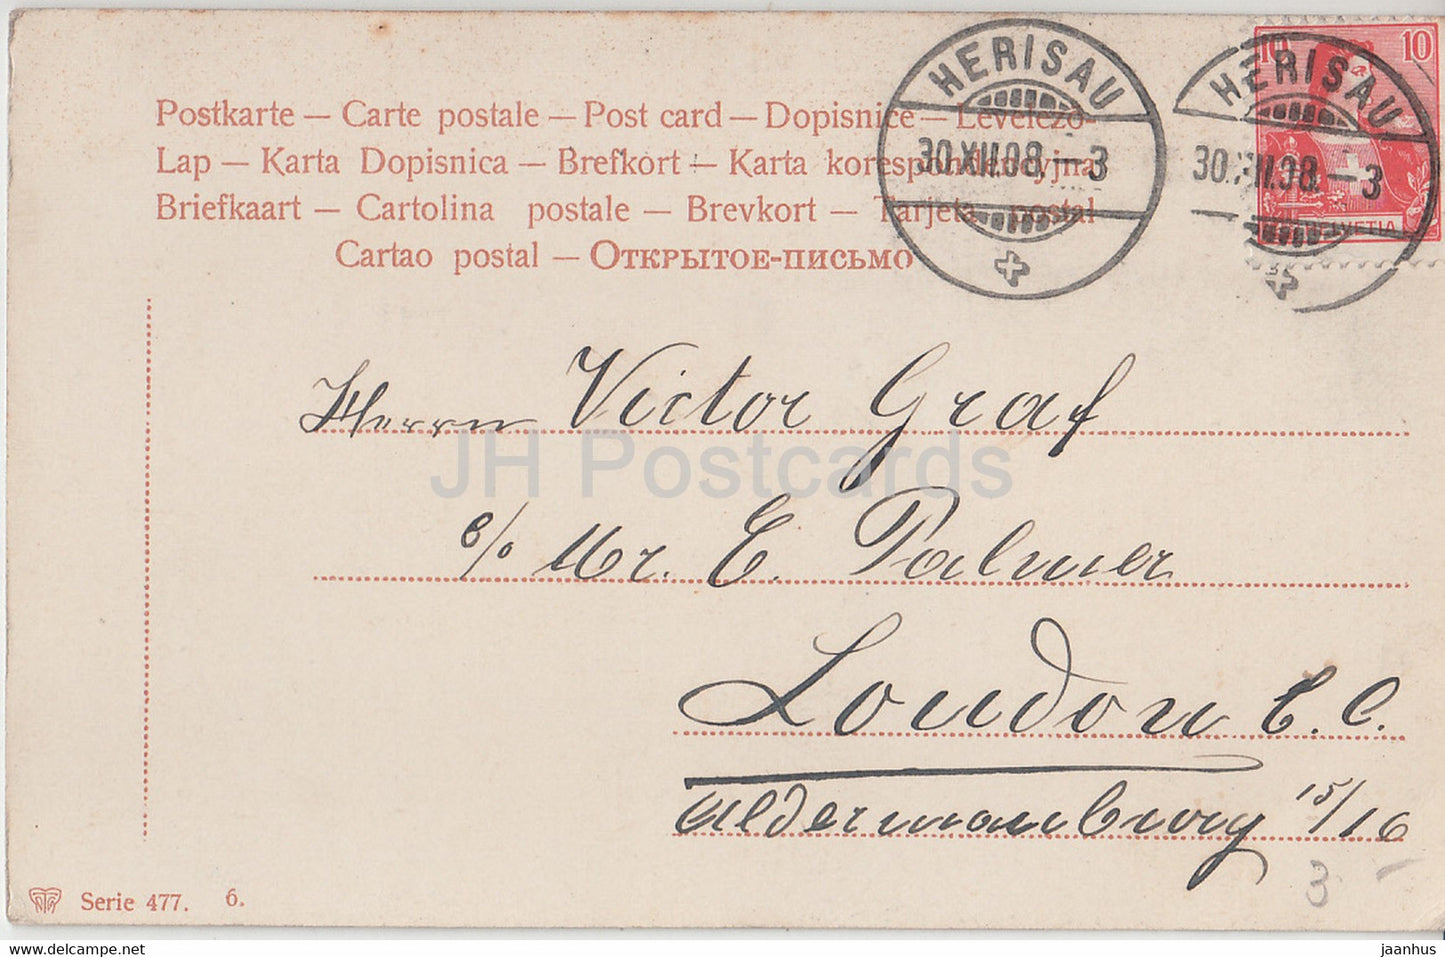 Postkarte — Carte postale — Post card — Dopisnice — Levelező-
Lap — Karta Dopisnica — Brefkort — Karta korespondencyjna
Briefkaart — Cartolina postale — Brevkort — Tarjeta postal
Cartao postal — Открытое-письмо
HERISAU
30.XII.08.—3
HERISAU
30.XII.08.—3
10 10
HELVETIA
Herrn Victor Graf
c/o Mr. E. Palmer
London E. C.
Aldermanbury 15/16
3 –
Serie 477. 6.
JH Postcards
www.hippostcard.com
jaanhus